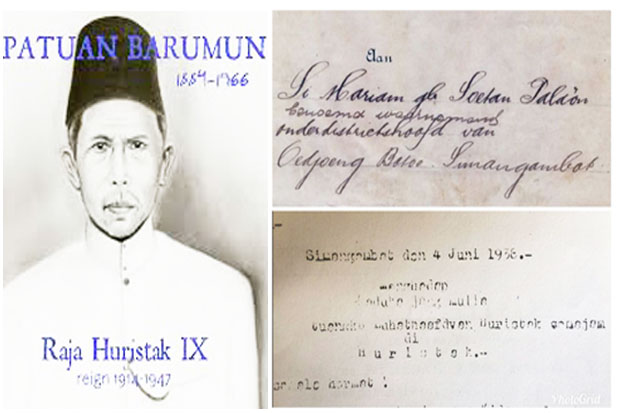 PATUAN BARUMUN
1884-1966
Raja Huristak IX
reign 1914-1947
Aan
Si Mariam gb Soetan Palaön
waarnemend
onderdistrictshoofd van
Oedjoeng Batoe Simangambat.
Simangambat den 4 Juni 1936.-
Mengueden
Paduka jang mulia
Huristak
di
H u r i s t a k.-
hormat !
PhotoGrid